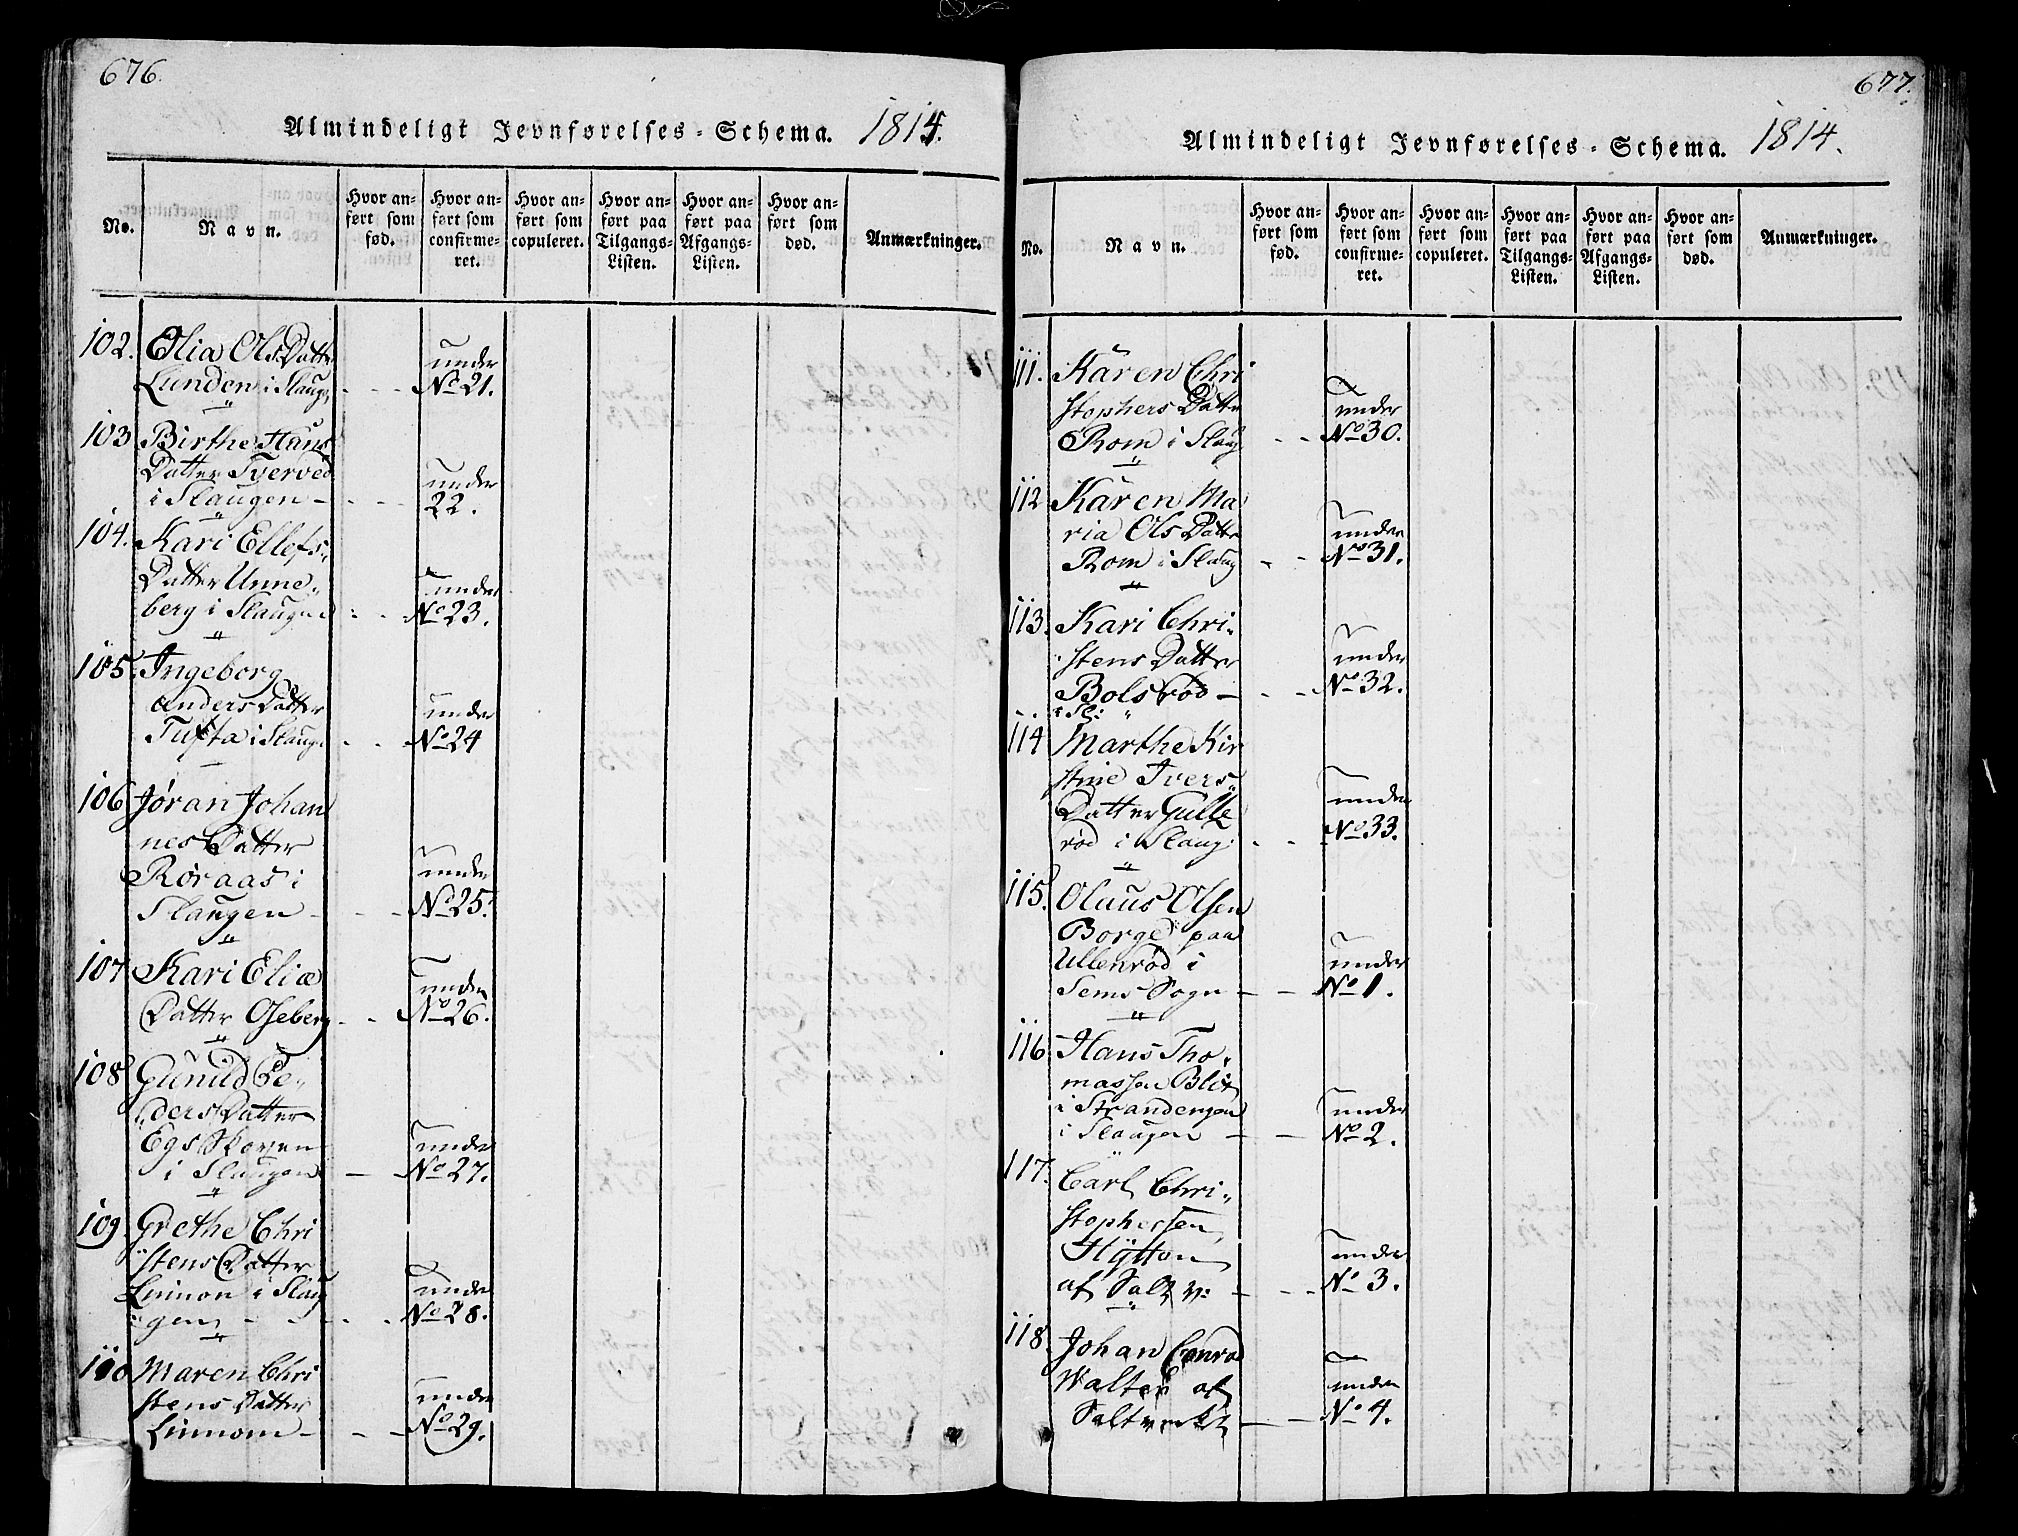 676.
Almindeligt Jevnførelses-Schema. 1814.
No.
Navn.
Hvor anført som fød.
Hvor anført som confirmeret.
Hvor anført som copuleret.
Hvor anført paa Tilgangs-Listen.
Hvor anført paa Afgangs-Listen.
Hvor anført som død.
Anmærkninger.
102. Elia Ols Datter under
Lunden i Slaug - - - No 21.
103 Birthe Hans
Datter Tverved under
i Slaugen - - - - 22.
104. Kari Ellefs
Datter Unne- under
berg i Slaugen - - No 23.
105. Ingeborg
Anders Datter under
Tufta i Slaugn - - No 24
106 Jøran Johan
nes Datter
Røraas i under
Slaugen - - - No 25.
107. Kari Eliæ under
Datter Oseberg - - No 26.
108 Gunild Pe-
ders Datter
Egs Skoven under
i Slaugen - No 27.
109. Grethe Chri
stens Datter
Linnom i Slau under
gen - - - - No 28.
110 Maren Chri
stens Datter under
Linnom - - - No 29.
677.
Almindeligt Jevnførelses-Schema. 1814.
No.
Navn.
Hvor anført som fød.
Hvor anført som confirmeret.
Hvor anført som copuleret.
Hvor anført paa Tilgangs-Listen.
Hvor anført paa Afgangs-Listen.
Hvor anført som død.
Anmærkninger.
111. Karen Chri
stophers Datter under
Rom i Slaug - - No 30.
112 Karen Ma
ria Ols Datter under
Rom i Slaug - - No 31.
113. Kari Chri-
stens Datter under
Bolsrød - - - No 32.
i Sl:
114 Marthe Kir
stine Ivers
Datter Gulle under
rød i Slaug: - - No 33.
115. Olaus Olsen
Borge paa
Ullenrød i under
Sems Sogn - - No 1.
116. Hans Tho-
massen Blix
i Strandengen under
i Slaugen - - No 2.
117. Carl Chri-
stophersen
Hÿtten under
af Salt v: - - - No 3.
118. Johan Conrad
Walter af under
Saltverket - - No 4.